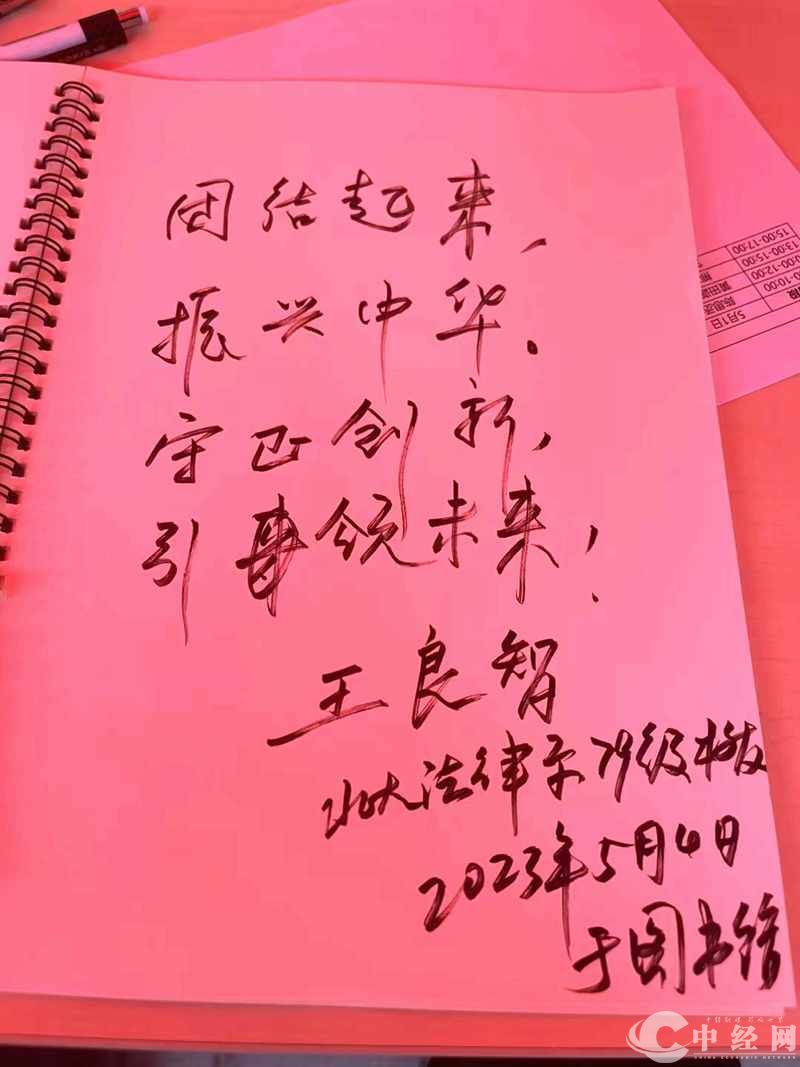 团结起来,
振兴中华.
守正创新,
引领未来!
王良智
北大法律系79级校友
2023年5月4日
于图书馆
5月1日
10:00-12:00
13:00-15:00
15:00-17:00
中经网
CHINA ECONOMIC NETWORK